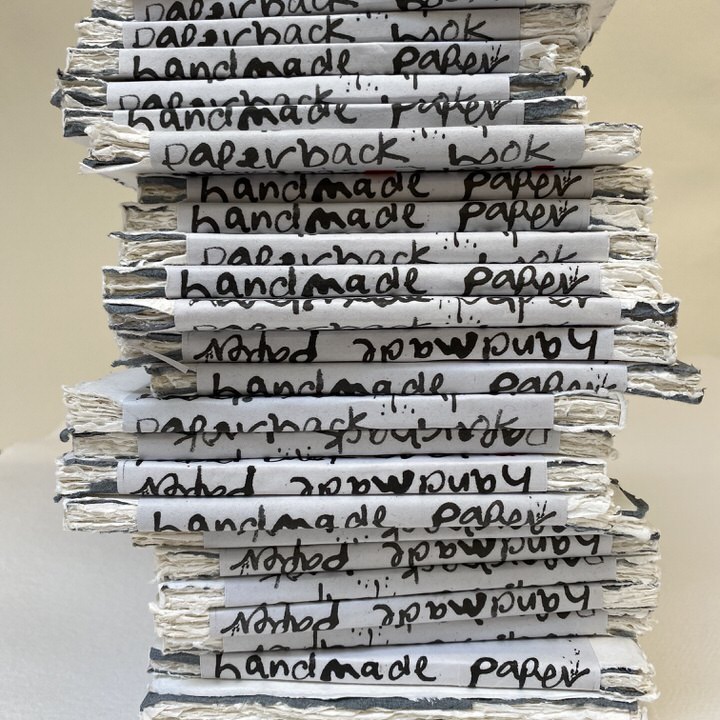 paperback book
paperback book
handmade paper
paperback
handmade paper
paperback book
handmade paper
handmade paper
paperback book
handmade paper
handmade paper
handmade paper
handmade paper
paperback book
paperback
handmade paper
handmade paper
handmade paper
handmade paper
handmade paper